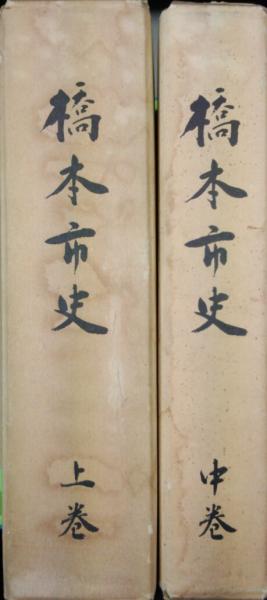 橋本市史
上巻
橋本市史
中巻